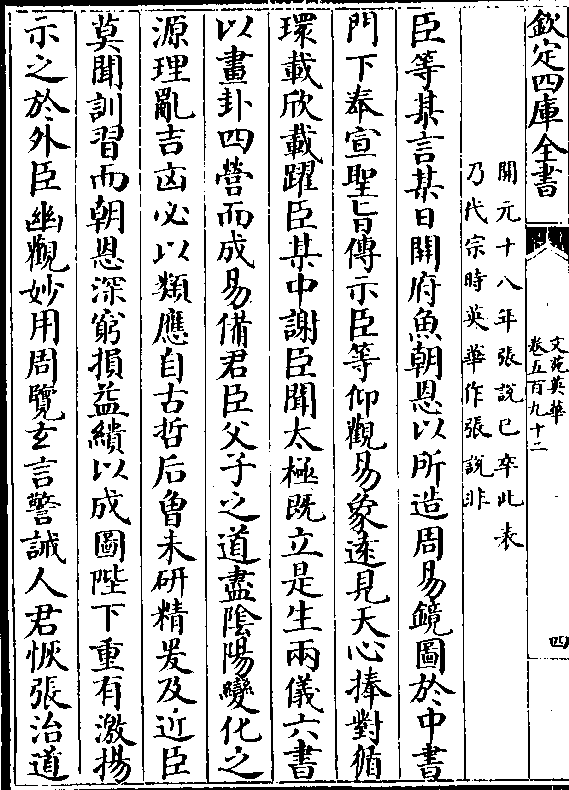 欽定四庫全書
文苑英華
卷五百九十二
四
開元十八年張說已卒此表
乃代宗時英華作張說非
臣等某言某日開府魚朝恩以所造周易鏡圖於中書
門下奉宣聖旨傳示臣等仰觀易象遠見天心捧對循
環載欣載躍臣某中謝臣聞太極既立是生兩儀六書
以畫卦四營而成易備君臣父子之道盡陰陽變化之
源理亂吉凶必以類應自古哲后曾未研精爰及近臣
莫聞訓習而朝恩深窮損益繢以成圖陛下重有激揚
示之於外臣幽觀妙用周覽玄言警誡人君恢張治道